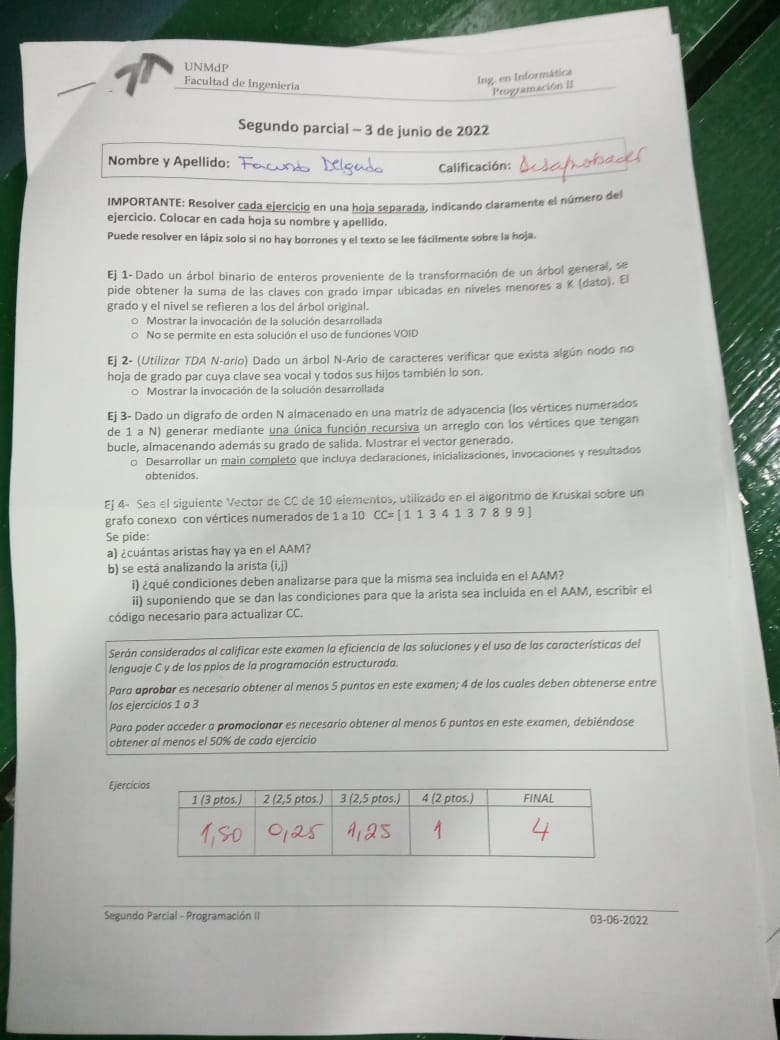 UNMdP
Facultad de Ingeniería
Ing. en Informática
Programación II
Segundo parcial – 3 de junio de 2022
Nombre y Apellido: Facundo Delgado
Calificación: Desaprobado
IMPORTANTE: Resolver cada ejercicio en una hoja separada, indicando claramente el número del
ejercicio. Colocar en cada hoja su nombre y apellido.
Puede resolver en lápiz solo si no hay borrones y el texto se lee fácilmente sobre la hoja.
Ej 1- Dado un árbol binario de enteros proveniente de la transformación de un árbol general, se
pide obtener la suma de las claves con grado impar ubicadas en niveles menores a K (dato). El
grado y el nivel se refieren a los del árbol original.
○ Mostrar la invocación de la solución desarrollada
○ No se permite en esta solución el uso de funciones VOID
Ej 2- (Utilizar TDA N-ario) Dado un árbol N-Ario de caracteres verificar que exista algún nodo no
hoja de grado par cuya clave sea vocal y todos sus hijos también lo son.
○ Mostrar la invocación de la solución desarrollada
Ej 3- Dado un digrafo de orden N almacenado en una matriz de adyacencia (los vértices numerados
de 1 a N) generar mediante una única función recursiva un arreglo con los vértices que tengan
bucle, almacenando además su grado de salida. Mostrar el vector generado.
○ Desarrollar un main completo que incluya declaraciones, inicializaciones, invocaciones y resultados
obtenidos.
Ej 4- Sea el siguiente Vector de CC de 10 elementos, utilizado en el algoritmo de Kruskal sobre un
grafo conexo con vértices numerados de 1 a 10 CC= [ 1 1 3 4 1 3 7 8 9 9 ]
Se pide:
a) ¿cuántas aristas hay ya en el AAM?
b) se está analizando la arista (i,j)
i) ¿qué condiciones deben analizarse para que la misma sea incluida en el AAM?
ii) suponiendo que se dan las condiciones para que la arista sea incluida en el AAM, escribir el
código necesario para actualizar CC.
Serán considerados al calificar este examen la eficiencia de las soluciones y el uso de las características del
lenguaje C y de los ppios de la programación estructurada.
Para aprobar es necesario obtener al menos 5 puntos en este examen; 4 de los cuales deben obtenerse entre
los ejercicios 1 a 3
Para poder acceder a promocionar es necesario obtener al menos 6 puntos en este examen, debiéndose
obtener al menos el 50% de cada ejercicio
Ejercicios
1 (3 ptos.) 2 (2,5 ptos.) 3 (2,5 ptos.) 4 (2 ptos.) FINAL
1,50 0,25 1,25 1 4
Segundo Parcial - Programación II
03-06-2022